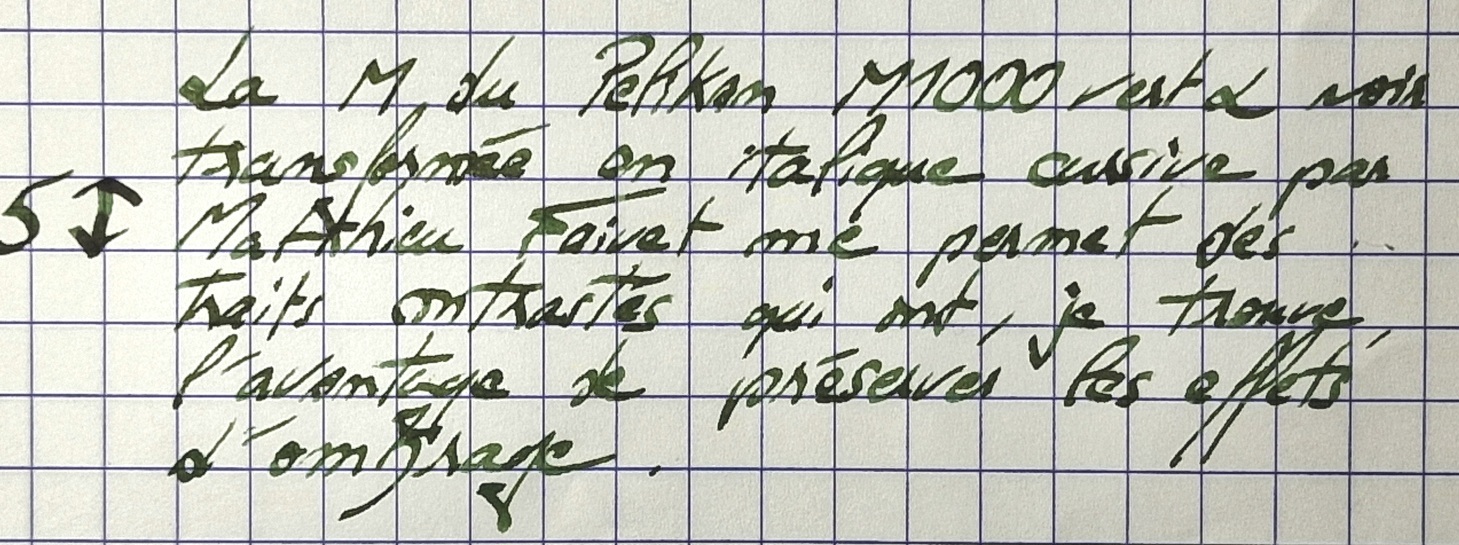 La M du Pelikan M1000 vert & noir
transformée en italique cursive par
5 ↕ Matthieu Faivet me permet des
traits contrastés qui ont, je trouve,
l'avantage de préserver les effets
d'ombrage.